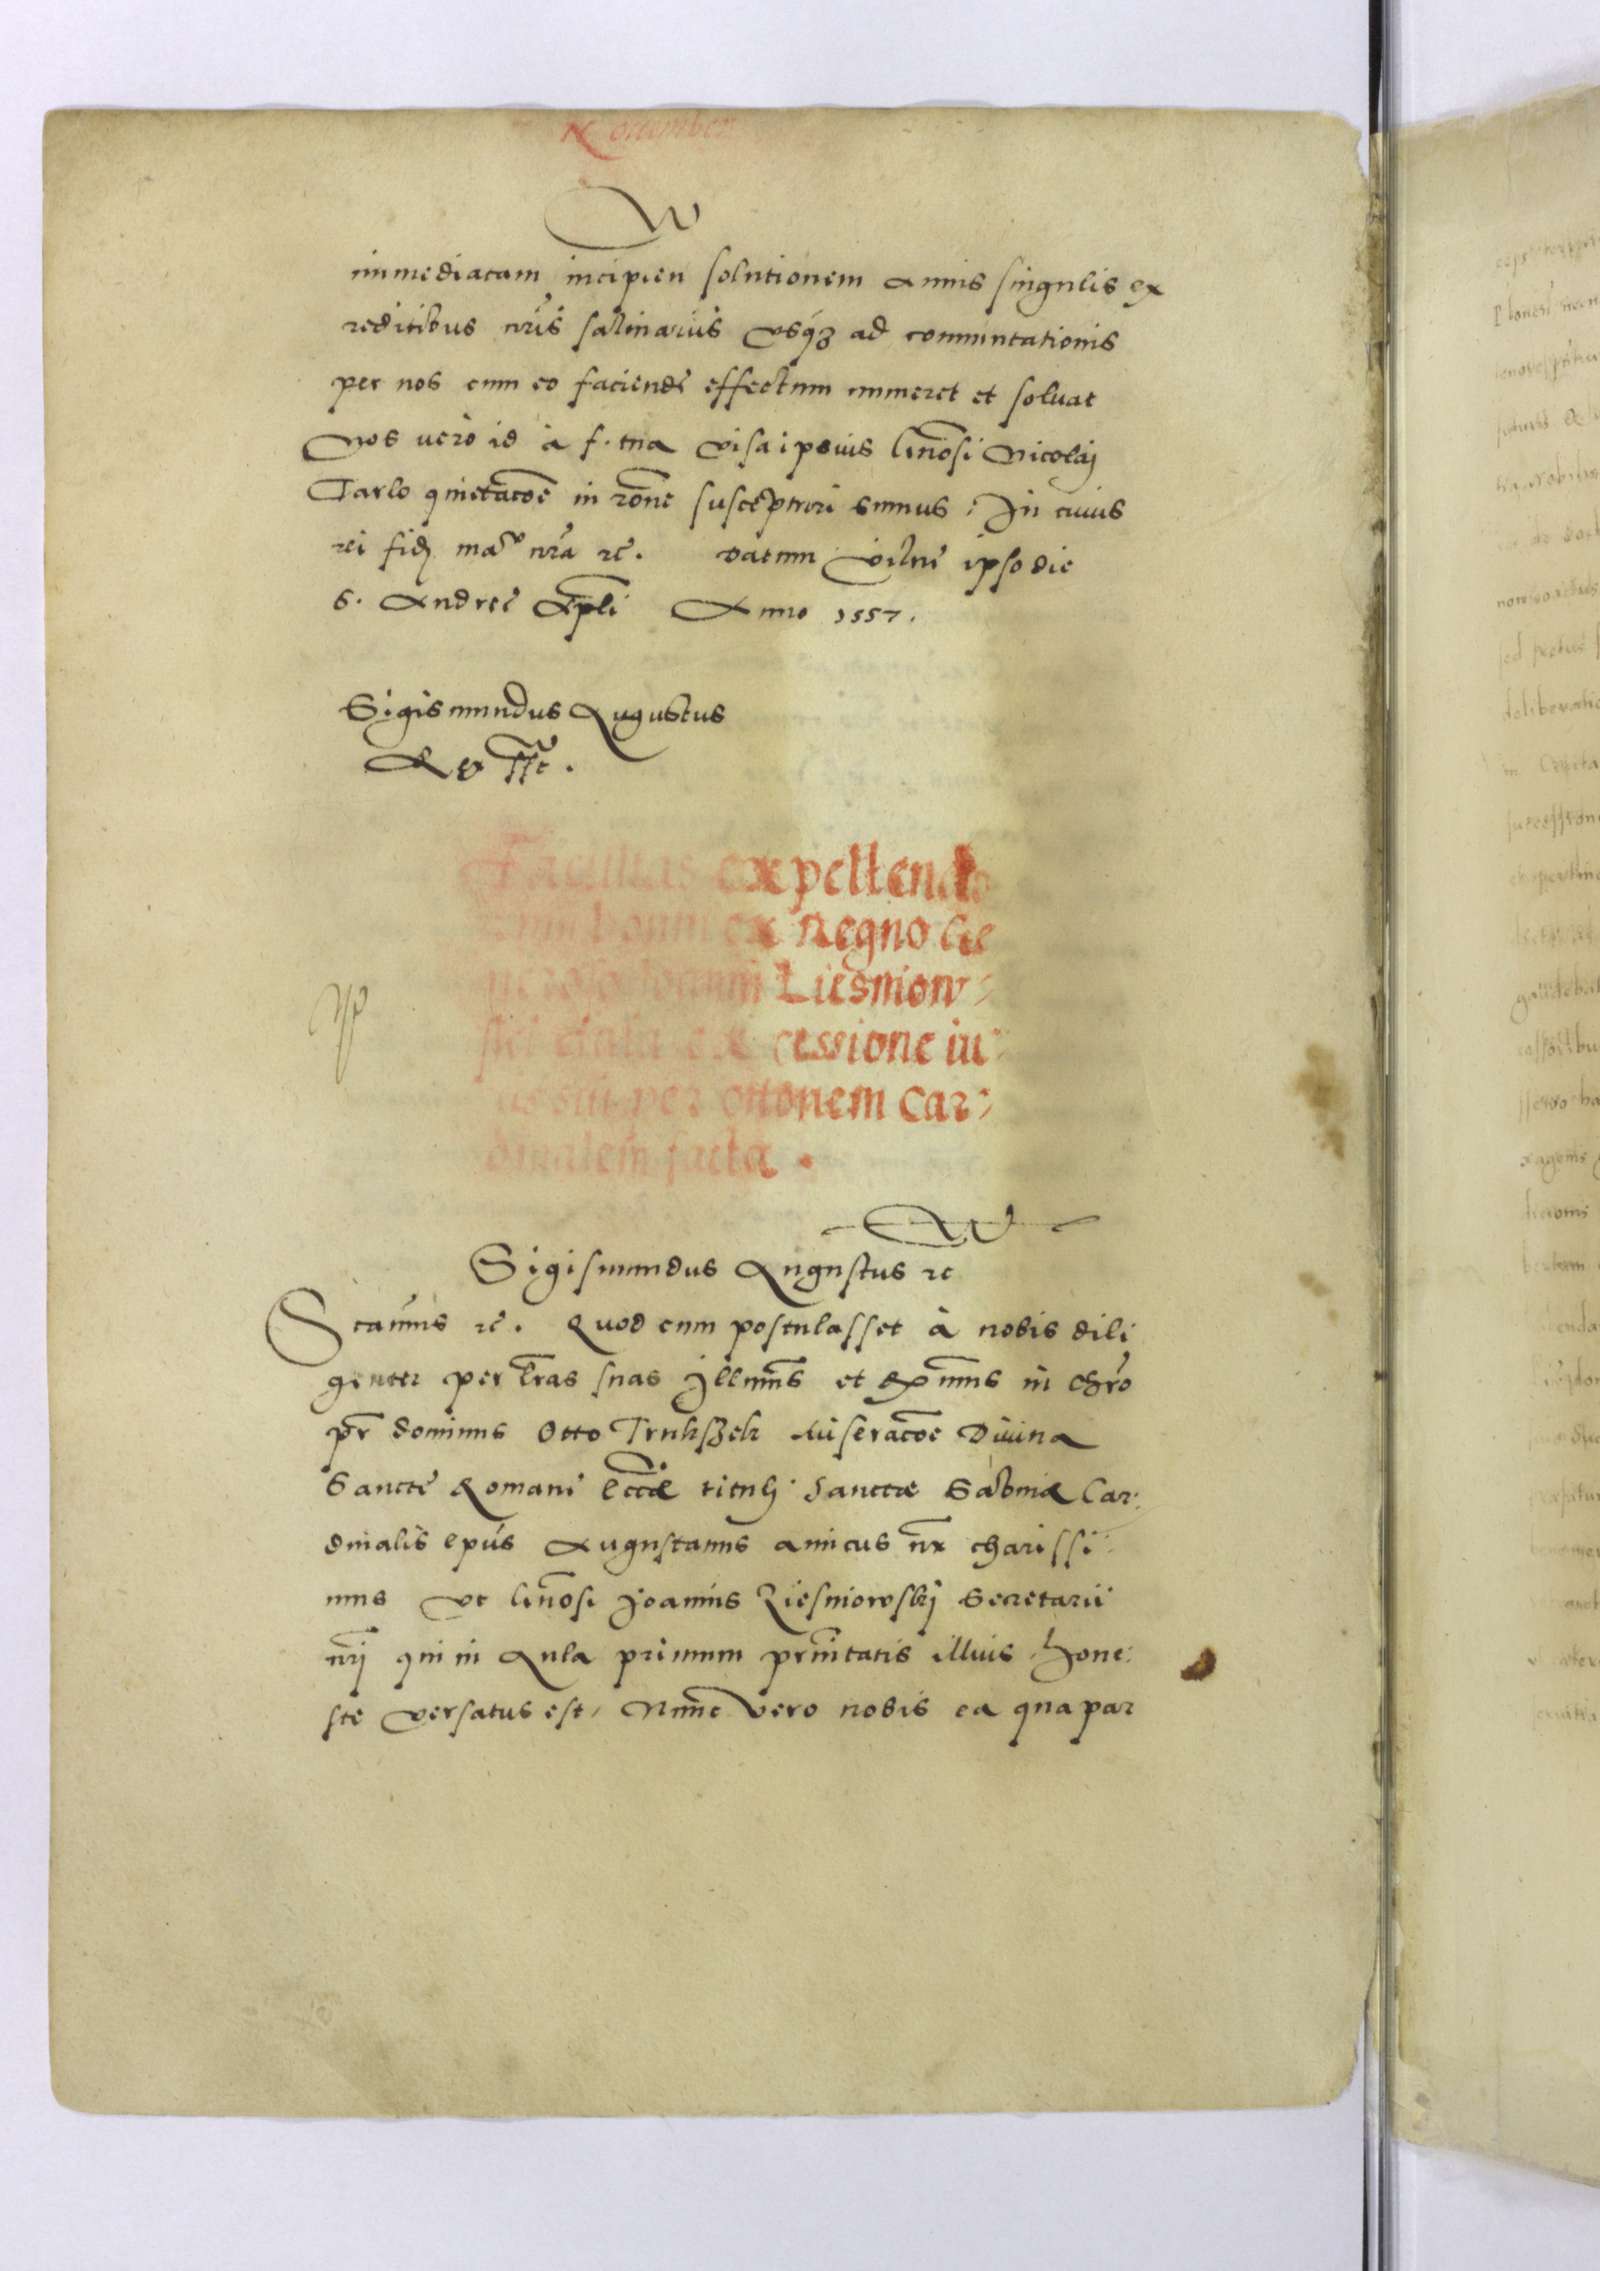 Nouember
W
immediatam incipien solutionem annis singulis ex
reditibus nrīs salinariis vsq3 ad commutationis
per nos cum eo faciendē effectum numeret et soluat
Nos uero id à f. tua visa ipsius Gnōsi Nicolaj
Tarlo quietacōē in rōne suscepturi sumus. In cuius
rei fidē nrā rc. Datum Vilnē ipso die
S. Andreē Apli Anno 1557.
Sigismundus Augustus
Rex
Facultas expellendo
rum boum ex Regno Ge
neroso Joanni Liesniow-
ski data ex cessione iu-
ris sui per Ottonem Car-
dinalem facta.
W
Sigismundus Augustus rc
Scimus rc. Quod cum postulasset à nobis dili
genter per lrās suas Illmus et Rmus in chrō
pr dominus Otto Truhszeh Miseracōe Diuina
Sanctē Romanē Eccē tituli Sanctæ Sabinæ Car-
dinalis epūs Augustanus amicus nr charissi-
mus vt Gnōsi Joannis Liesniowskj Secretarii
nrj qui in Aula primum prnitatis illius hone-
ste versatus est, Nunc vero nobis ea qua par